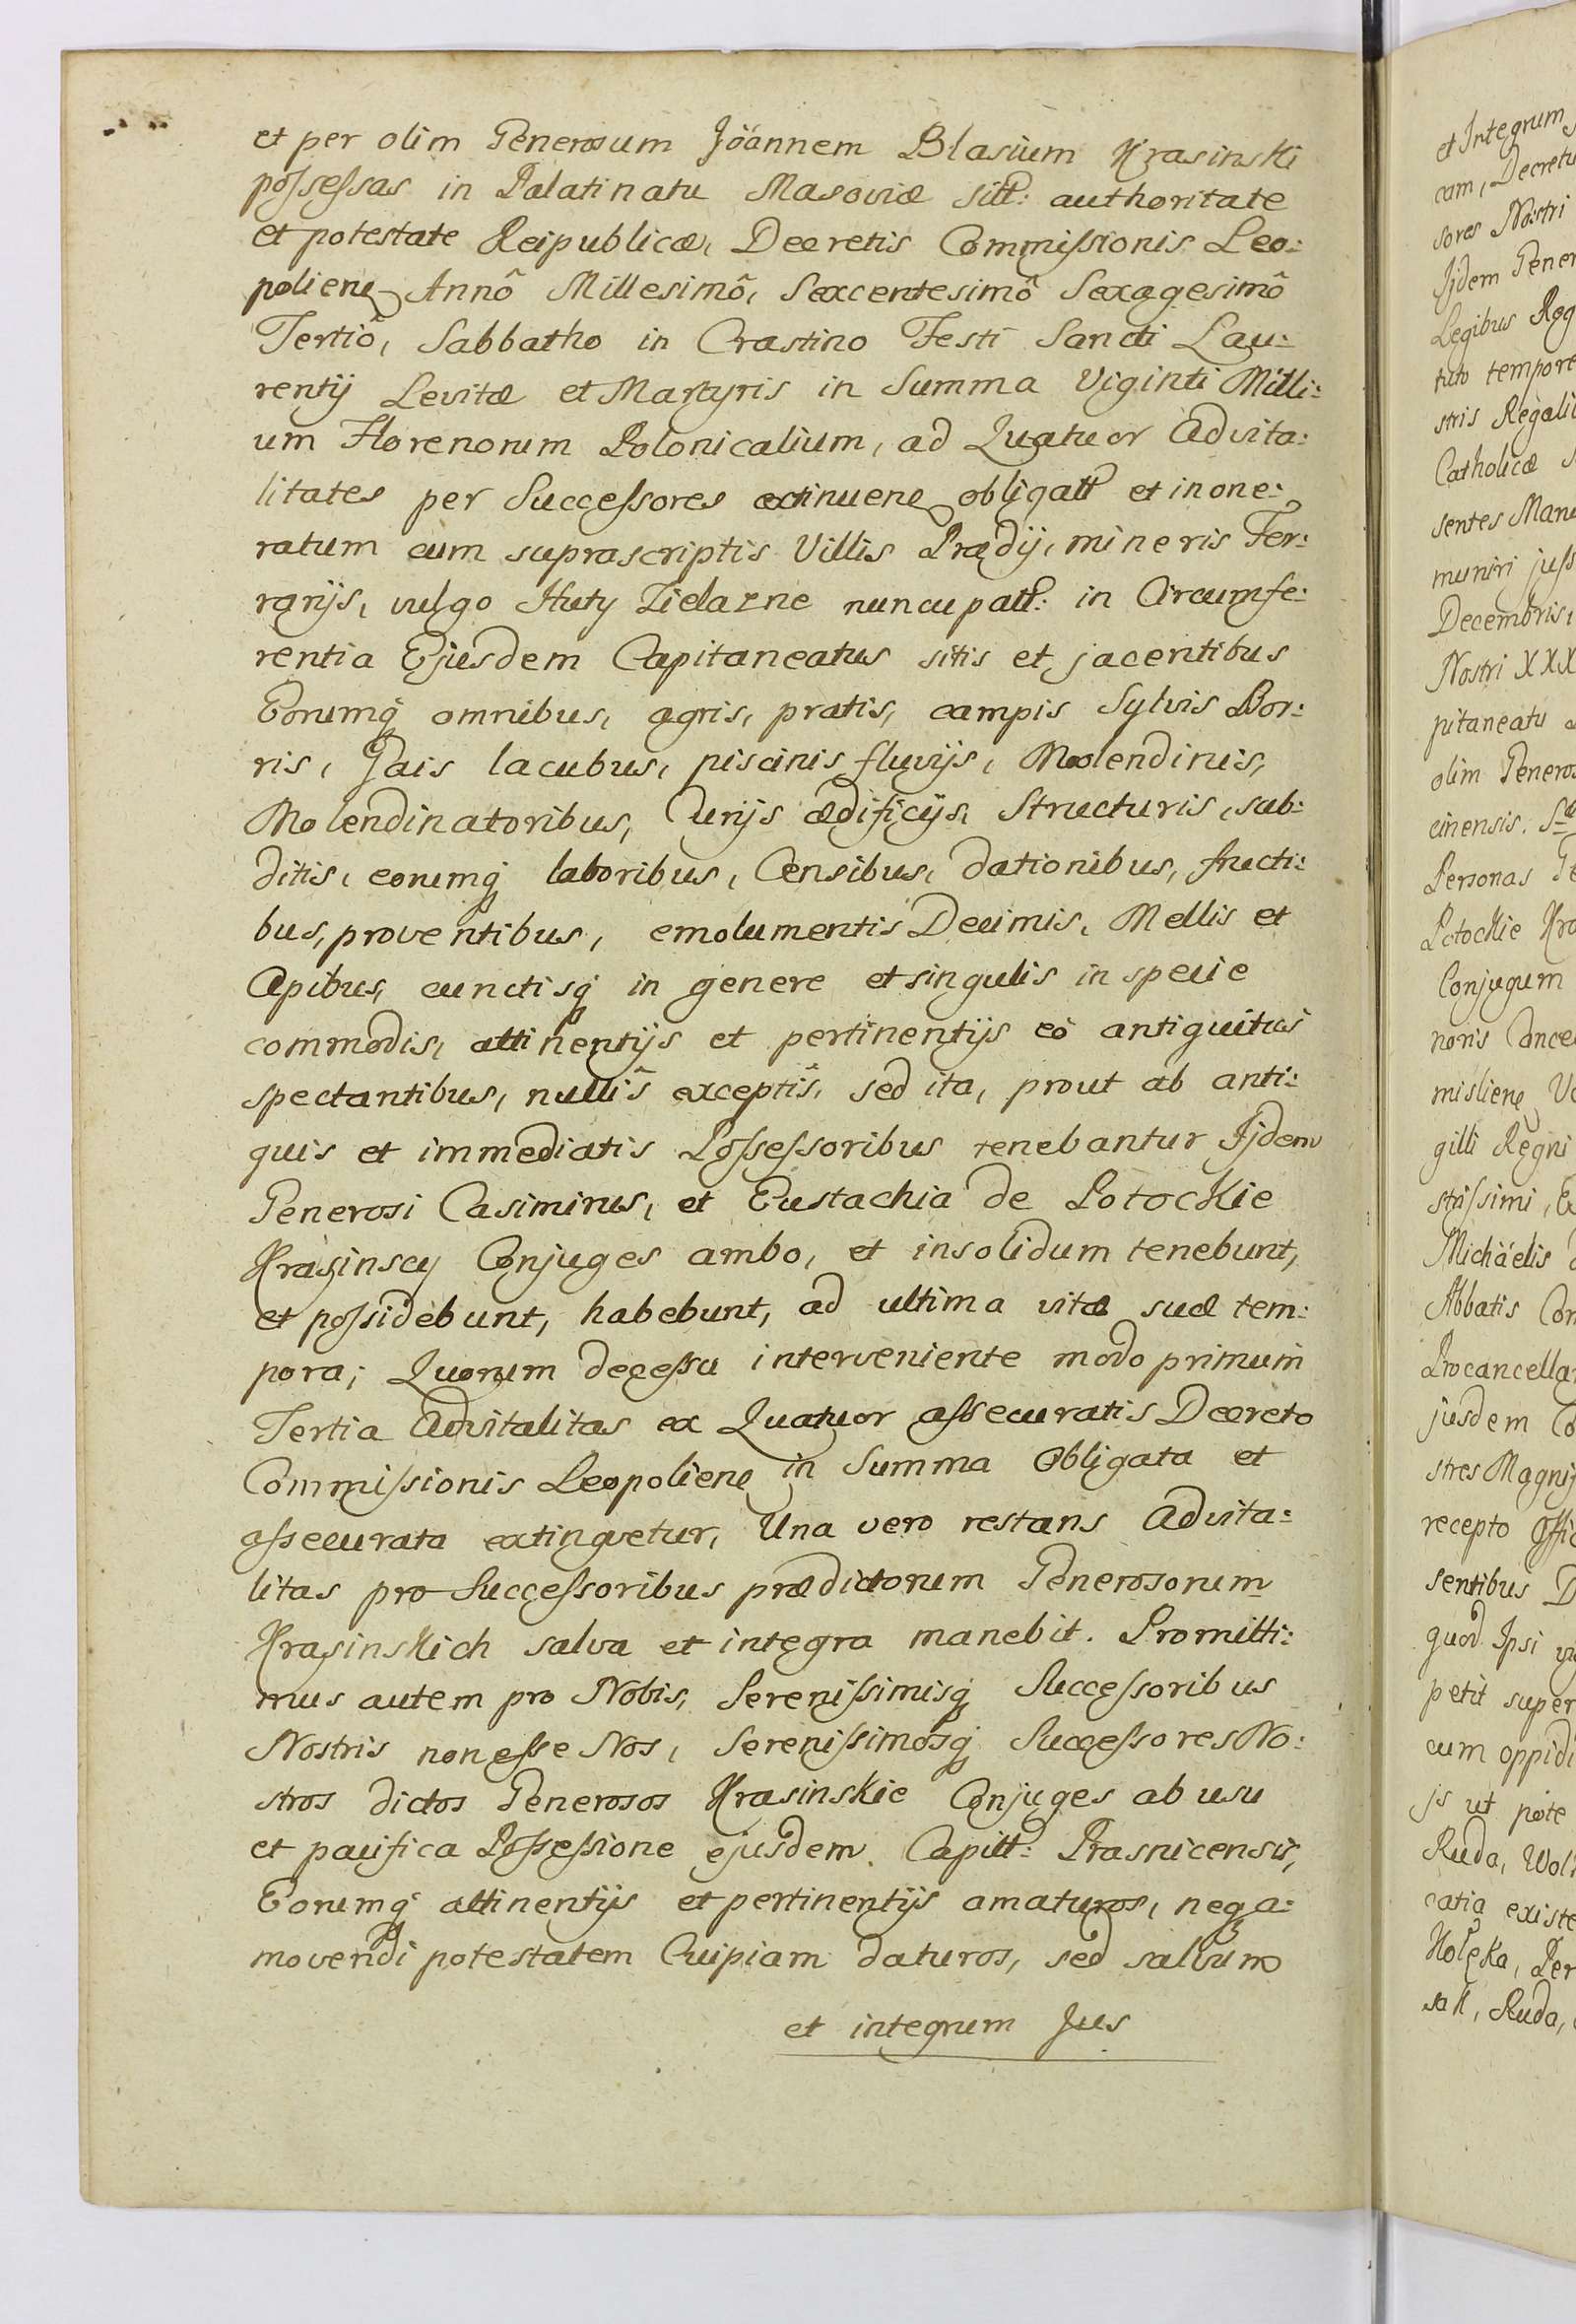 et per olim Generosum Joannem Blasium Krasinski
possessas in Palatinatu Masoviæ sitt: authoritate
et potestate Reipublicæ, Decretis Commissionis Leo:
poliens Annô Millesimô, Sexcentesimô Sexagesimô
Tertiô, Sabbatho in Crastino Festi Sancti Lau:
rentij Levitæ et Martyris in Summa Viginti Milli:
um Florenorum Polonicalium, ad Quatuor Advita:
litates per Successores extinuene obligatt et inone:
ratum cum suprascriptis Villis Prædij, mineris Fer:
rarijs, vulgo Huty Zielazne nuncupatt: in Circumfe:
rentia Ejusdem Capitaneatus sitis et jacentibus
Eorumq omnibus, agris, pratis, campis Sylvis Bor:
ris, Gais lacubus, piscinis fluvijs, Moolendinis,
Molendinatoribus, Curijs ædificijs, Structuris, sub:
ditis, eorumq laboribus, Censibus, dationibus, fructi:
bus, proventibus, emolumentis Decimis, Mellis et
Apibus, cunctisq in genere et singulis in specie
commodis, attinentijs et pertinentijs eò antiquitus
spectantibus, nullis exceptis, sed ita, prout ab anti:
quis et immediatis Possessoribus tenebantur Ijdem
Generosi Casimirus, et Eustachia de Potockie
Krasinscy Conjuges ambo, et insolidum tenebunt,
et possidebunt, habebunt, ad ultima vitæ suæ tem:
pora; Quorum decessu interveniente modo primum
Tertia Advitalitas ex Quatuor assecuratis Decreto
Commissionis Leopoliens in Summa Obligata et
assecurata extinguetur, Una vero restans Advita:
litas pro Successoribus prædictorum Generosorum
Krasinskich salva et integra manebit. Promitti:
mus autem pro Nobis, Serenissimisq Successoribus
Nostris non esse Nos, Serenissimosq Successores No:
stros dictos Generosos Krasinskie Conjuges ab usu
et pacifica Possessione ejusdem Capitt: Prasnicensis,
Eorumq attinentijs et pertinentijs amaturos, nega:
movendi potestatem Cuipiam daturos, sed salvum
et integrum Jus
et Integrum
cam, Decretu
sores Nostri
Ijdem Gener
Legibus Reg
tuto tempore
stris Regali
Catholicæ
sentes Manu
muniri juss
Decembris,
Nostri XXX
pitaneatu
olim Generos
cinensis.
Personas Ge
Potockie Kra
Conjugum
noris Cance
misliens Vo
gilli Regni
strissimi, E
Michaelis
Abbatis Com
Procancella
jusdem Co
stres Magnif
recepto Offic
sentibus D
quod Ipsi
petit super
cum oppidi
js ut pote
Ruda, Wol
catia existe
Holeka, Per
sak, Ruda,